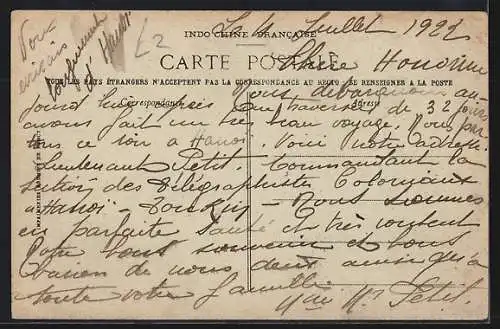 Le 4 Juillet 1922
INDO-CHINE FRANÇAISE
CARTE POSTALE
Chère Honorine
TOUS LES PAYS ÉTRANGERS N'ACCEPTENT PAS LA CORRESPONDANCE AU RECTO SE RENSEIGNER A LA POSTE
Correspondance
Adresse
Nous débarquons au
jourd'hui après une traversée de 32 jours
avons fait un très beau voyage. Nous
tons ce soir à Hanoï. Voici notre adresse.
Lieutenant Petit. Commandant la
section des Télégraphistes Coloniaux
à Hanoï - Tonkin - Nous sommes
en parfaite santé et très contents
bons souvenirs et bons
baisers de nous deux ainsi qu'à
toute votre famille
Mme Petit